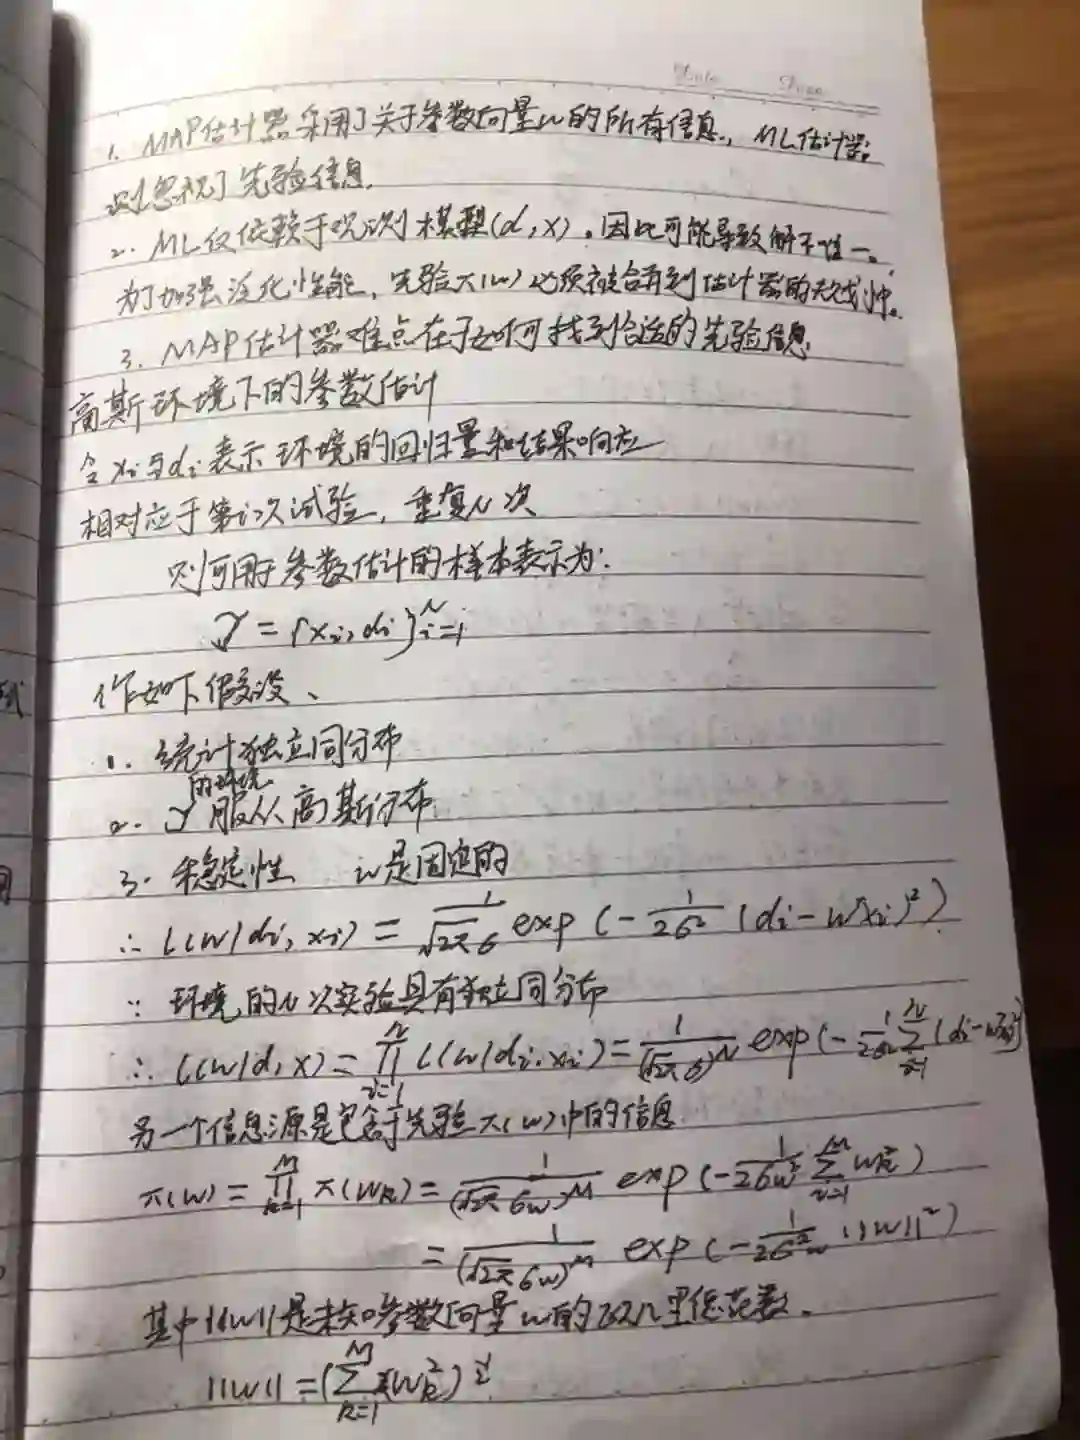 Date Page
1. MAP估计器采用了关于参数向量w的所有信息，ML估计器
则忽视了先验信息.
2. ML仅依赖于观测模型(d,x)。因此可能导致解不唯一。
为了加强泛化性能，先验π(w)必须被合并到估计器的 中.
3. MAP估计器难点在于如何找到合适的先验信息.
高斯环境下的参数估计
令xi与di表示环境的回归量和结果响应
相对应于第i次试验，重复N次
则可用于参数估计的样本表示为:
𝒯={xi,di}ᴺi=1
作如下假设、
1. 统计独立同分布
的环境
2. 𝒯服从高斯分布
3. 稳定性 w是固定的
∴ l(w|di, xi) = 1/(√2π σ) exp (-1/2σ² (di - wᵀxi)²)
∵ 环境的N次实验具有独立同分布
∴ l(w|d, x) = ∏ᴺi=1 l(w|di, xi) = 1/(√2π σ)ᴺ exp(-1/2σ² ∑ᴺi=1 (di - wᵀxi)²)
另一个信息源是包含于先验π(w)中的信息
π(w) = ∏ᴹk=1 π(wk) = 1/(√2π σw)ᴹ exp(-1/2σw² ∑ᴹi=1 wk²)
= 1/(√2π σw)ᴹ exp(-1/2σ²w ||w||²)
其中||w||是未知参数向量w的欧几里德范数.
||w|| = (∑ᴹk=1 wk²)^½